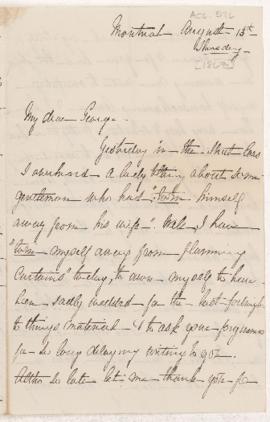 ACC. 576
Montreal August 15th
Thursday
[1867]
My dear George.
Yesterday in the Street Cars
I overheard a lady talking about some
gentleman who had "torn himself
away from his wife". Well I have
"torn myself away from planning
Curtains" today, to own myself to have
been sadly wedded for the last fortnight
to things material & to ask your forgiveness
for so long delaying writing to you.
Altho' so late let me thank you for